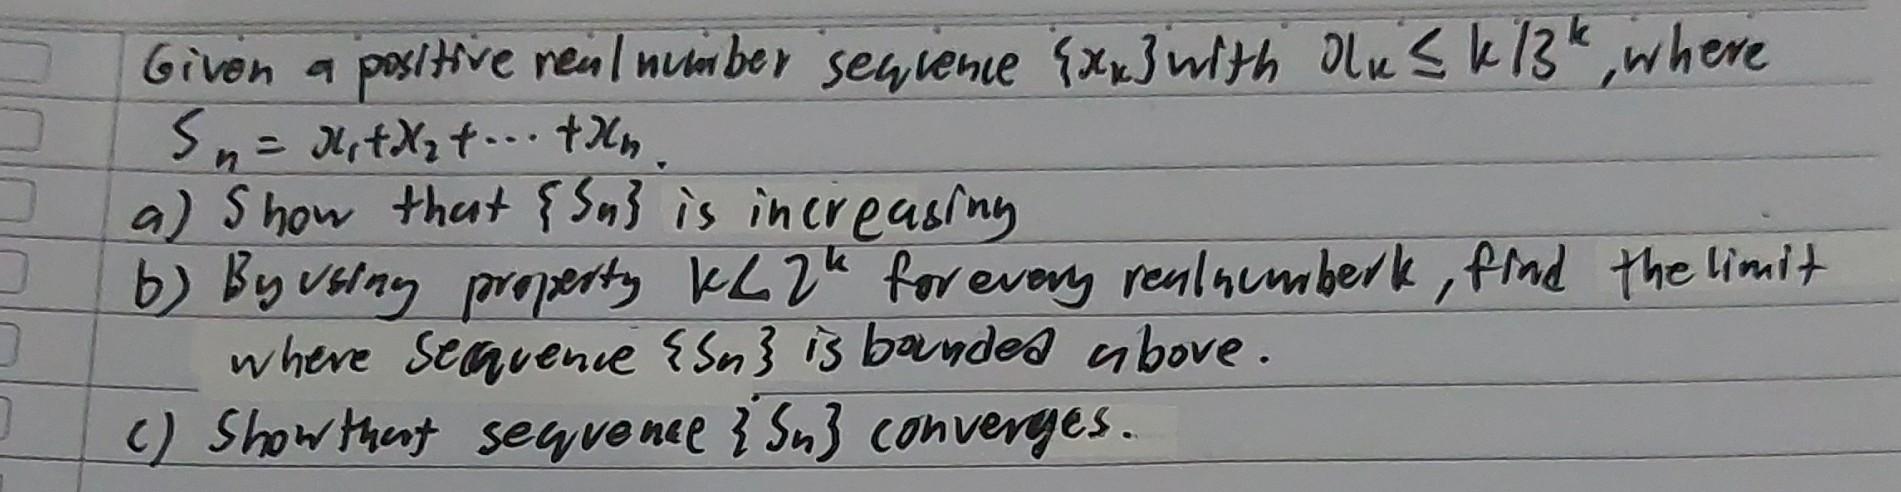 Given a positive real number sequence {xₖ} with xₖ ≤ k/3ᵏ, where
Sₙ = x₁+x₂+...+xₙ.
a) Show that {Sₙ} is increasing
b) By using property k<2ᵏ for every real number k, find the limit
where sequence {Sₙ} is bounded above.
c) Show that sequence {Sₙ} converges.